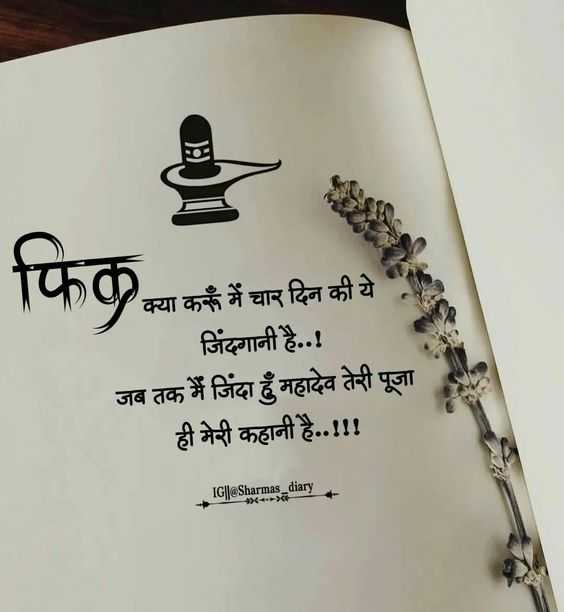 फिक्र क्या करूँ में चार दिन की ये
जिंदगानी है..!
जब तक मैं जिंदा हूँ महादेव तेरी पूजा
ही मेरी कहानी है..!!!
IG||@Sharmas_diary